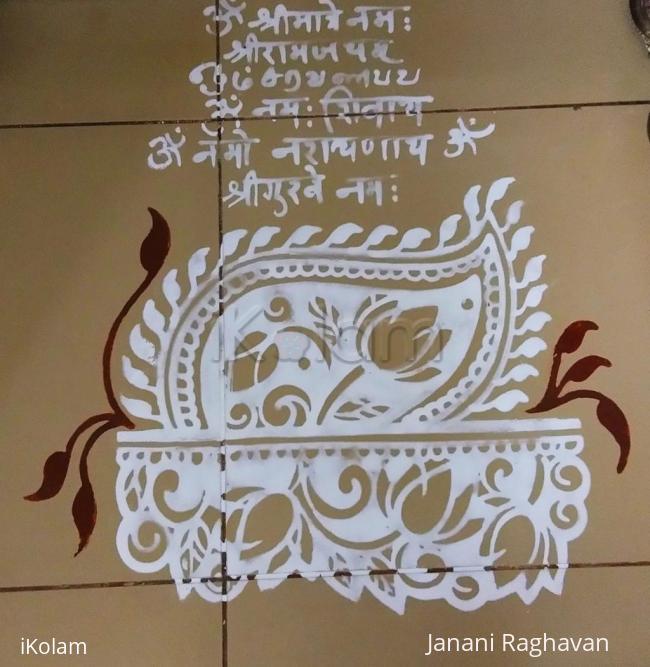 ॐ श्रीमात्रे नमः
श्रीरामजयम
ॐ नमः शिवाय
ॐ नमो नरायणाय ॐ
श्रीगुरवे नमः
iKolam
iKolam
Janani Raghavan